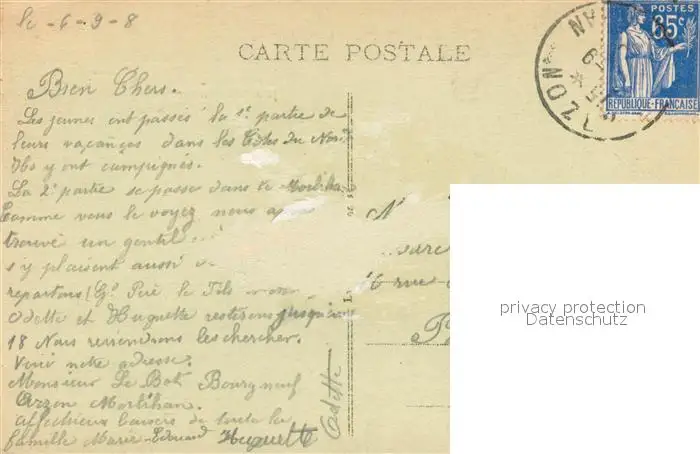 le -6-9-8
CARTE POSTALE
POSTES
65c
REPUBLIQUE-FRANÇAISE
Bien Chers.
Les jeunes ont passés la 1e partie de
leurs vacances dans les Côtes du Nord
Ils y ont campignés.
La 2e partie se passe dans le Morbihan
Comme vous le voyez nous a
trouvé un gentil
s'y plaisent aussi
repartons (Gd Père le Fils
Odette et Huguette resterons jusqu'au
18 Nous reviendrons les chercher.
Voici notre adresse.
Monsieur Le Bot Bourgneuf
Arzon Morbihan.
affectueux baisers de toute la
famille Marie-Edouard Huguette
Odette
6 rue
privacy protection
Datenschutz